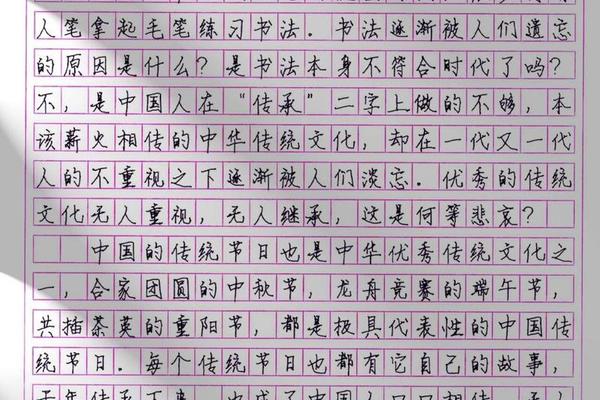 人笔拿起毛笔练习书法．书法逐渐被人们遗忘
的原因是什么？是书法本身不符合时代了吗？
不，是中国人在“传承”二字上做的不够，本
该薪火相传的中华传统文化，却在一代又一代
人的不重视之下逐渐被人们淡忘．优秀的传统
文化无人重视，无人继承，这是何等悲哀？
中国的传统节日也是中华优秀传统文化之
一，合家团圆的中秋节，龙舟竞赛的端午节，
共插茶英的重阳节，都是极具代表性的中国传
统节日．每个传统节日也都有它自己的故事，
千年传承下来，也成了中国人口口相传